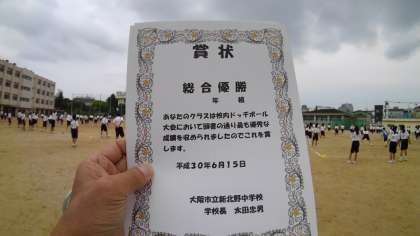 賞状
総合優勝
年 組
あなたのクラスは校内ドッチボール
大会において頭書の通り最も優秀な
成績を収められましたのでこれを賞
します。
平成30年6月15日
大阪市立新北野中学校
学校長 太田忠男